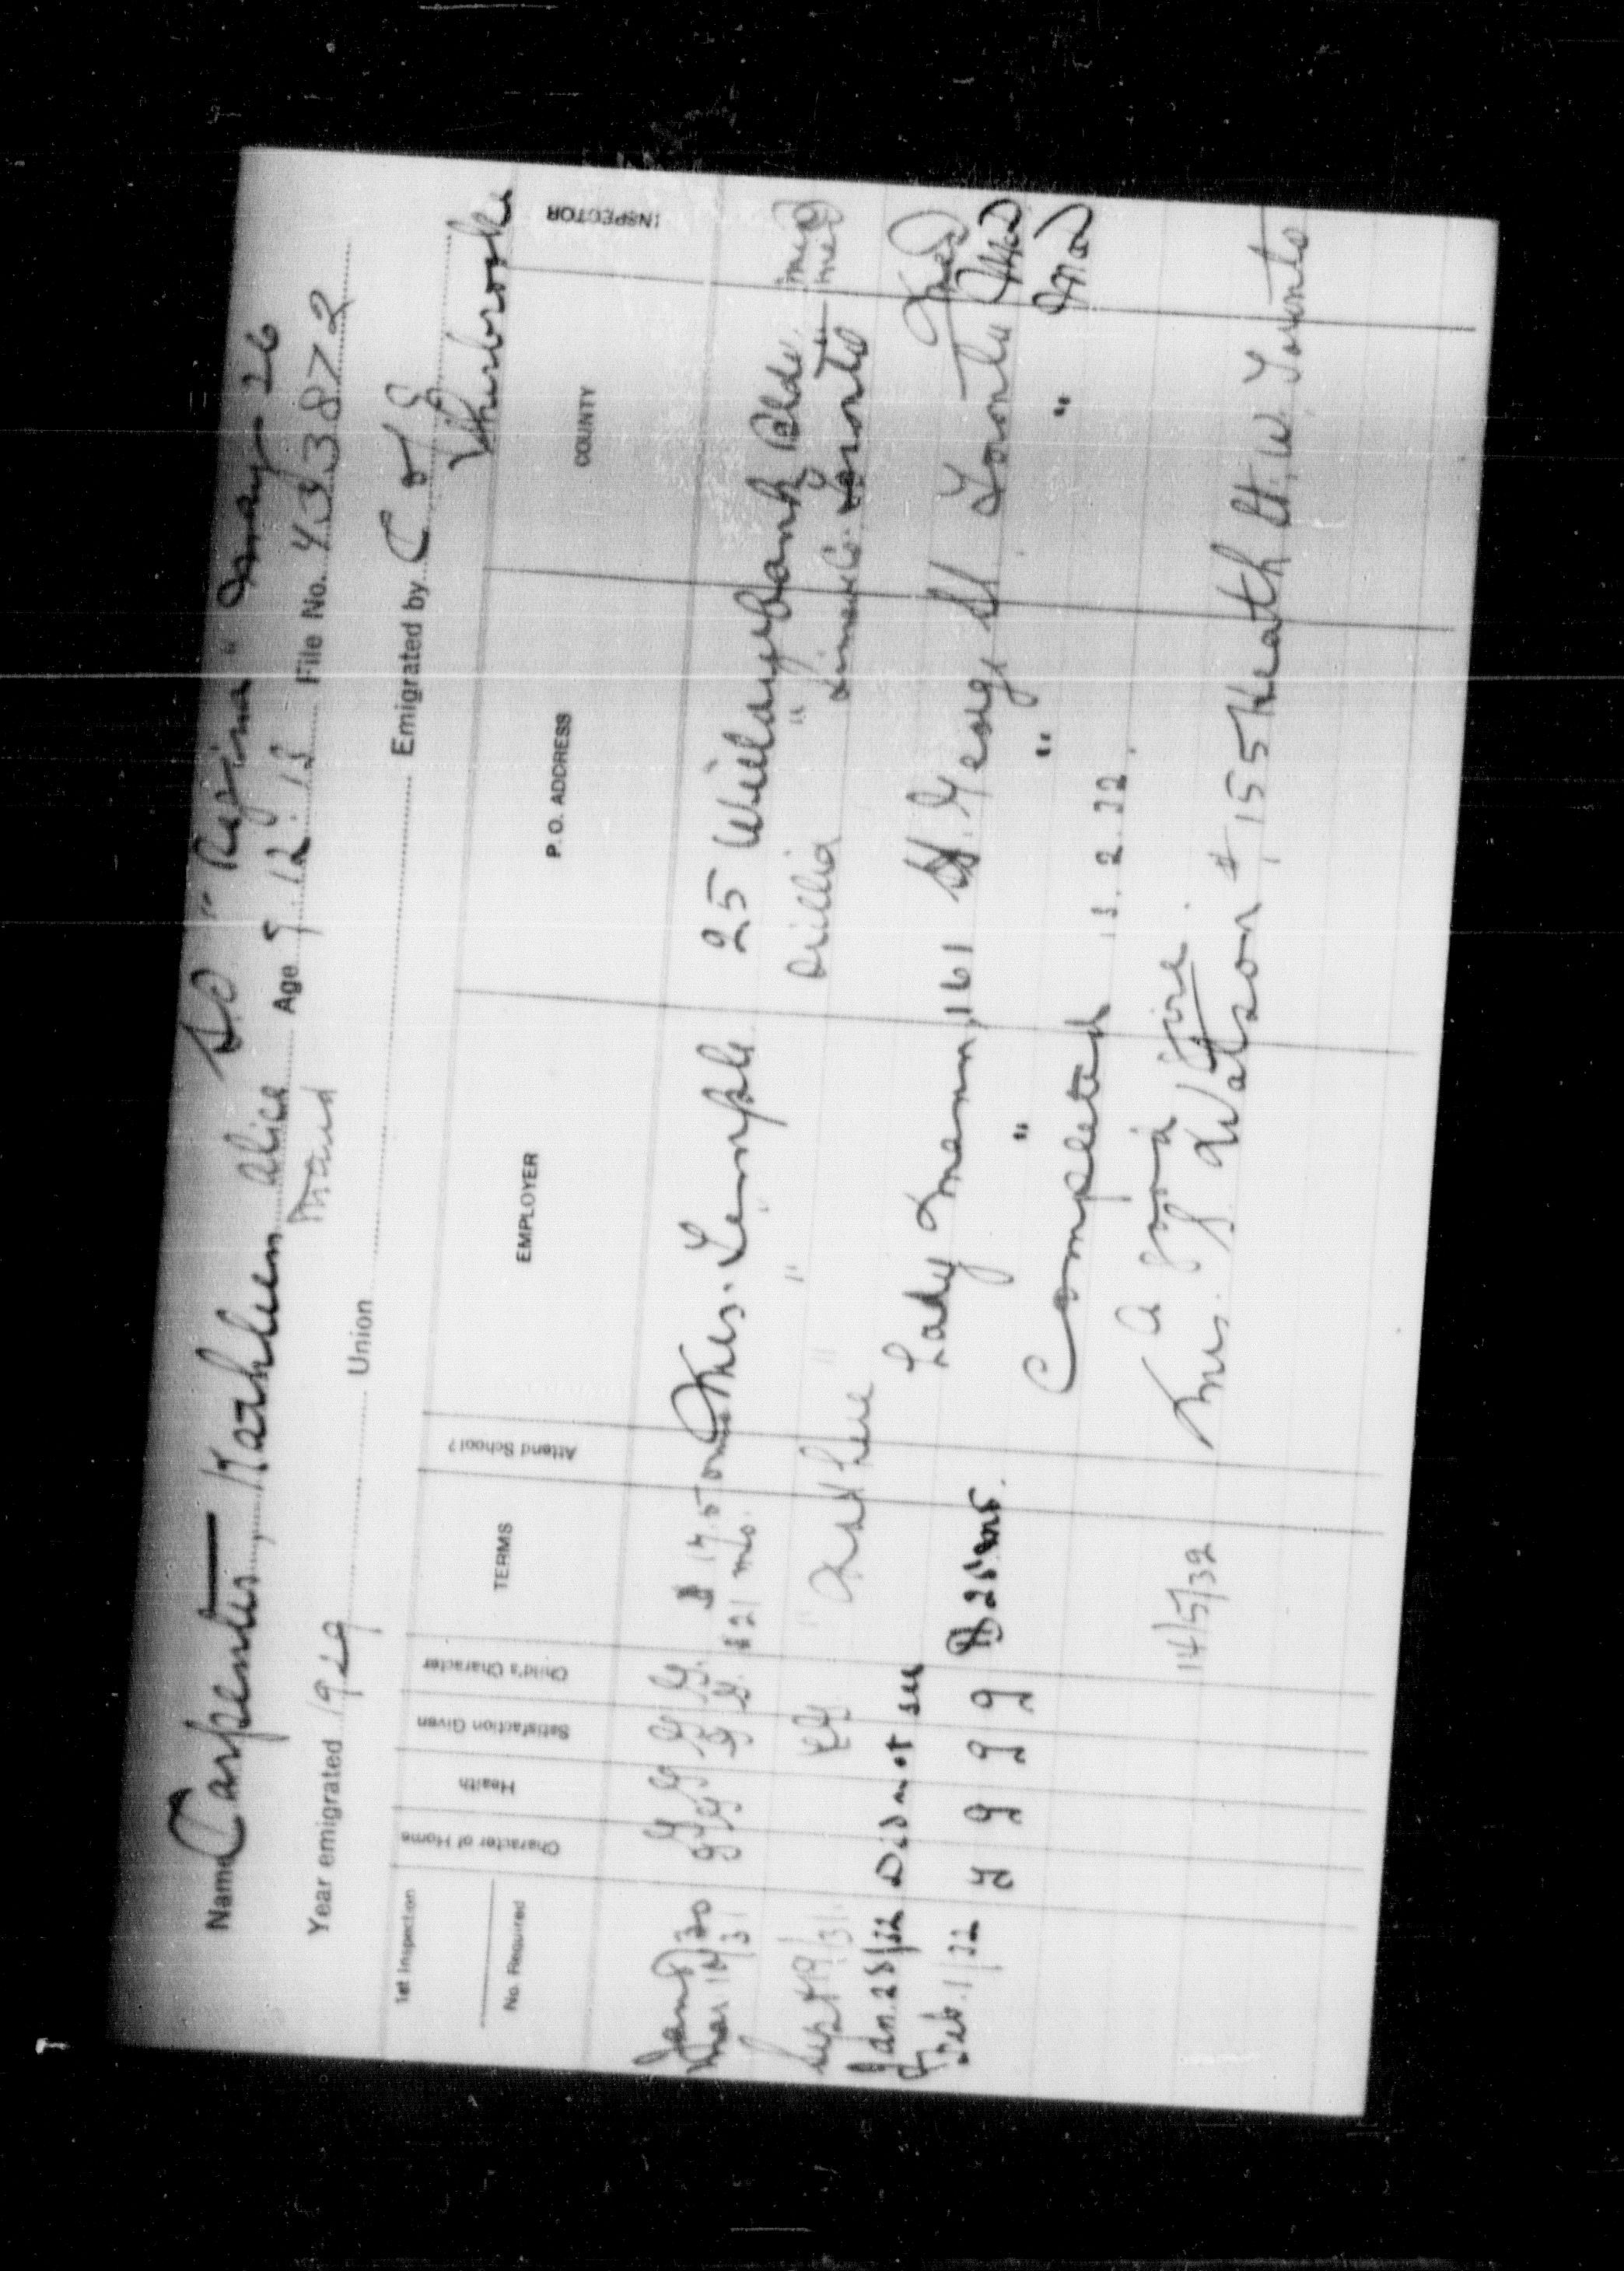 Name Carpenter, Kathleen Alice SS "Regina" May 26
Maud
Year emigrated 1929 Union Age 9.12.12 File No. 433872
Emigrated by C of E
Sherbrooke
1st Inspection
No. Required
Character of Home
Health
Satisfaction Given
Child's Character
TERMS
Attend School?
EMPLOYER
P. O. ADDRESS
COUNTY
INSPECTOR
Jan 8/30 G G G G $ 17.50 Mrs. Temple 25 Willowbank Blde
Mar 12/31 G G G G $21 mo. " " " MED
Sept 19/31 " " Orillia Simcoe Co. Toronto MED
Not here
Jan. 28/32 Did not see Lady Mann, 161 St. George St Toronto
Feb. 1/32 G G G G $ 25 mo. " " "
Completed 13.2.32.
A Good Girl.
14/5/32 Mrs. Watson # 155 Heath St. W. Toronto